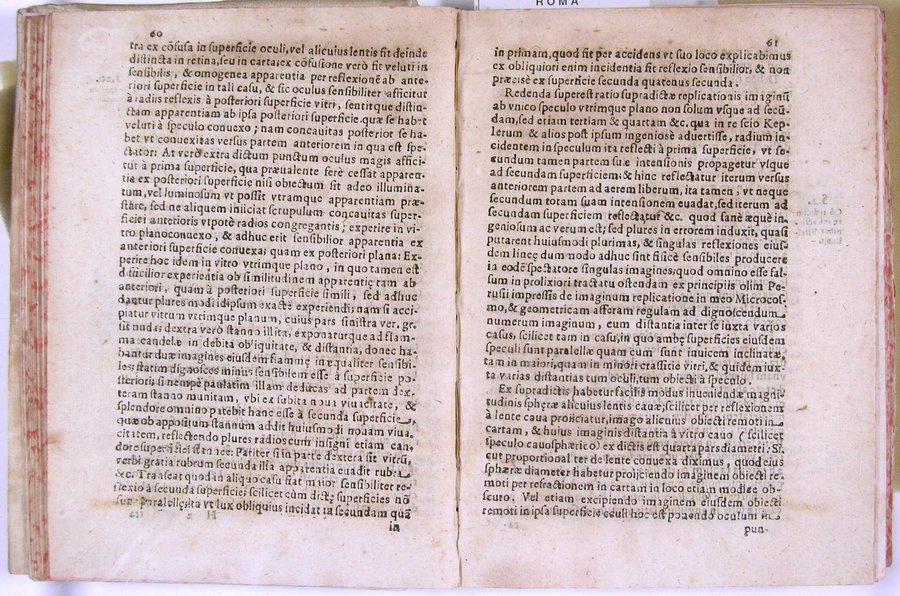 ROMA
60
tra ex cõfusa in superficie oculi, vel alicuius lentis fit deinde
distincta in retina, seu in carta, ex cõfusione verò fit veluti in
sensibilis, & omogenea apparentia per reflexionẽ ab ante-
riori superficie in tali casu, & sic oculus sensibiliter afficitur
à radiis reflexis à posteriori superficie vitri, sentitque distin-
ctam apparentiam ab ipsa posteriori superficie. quæ se habet
veluti à speculo conuexo; nam concauitas posterior se ha-
bet vt conuexitas versus partem anteriorem in qua est spe-
ctator: At verò extra dictum punctum oculus magis affici-
tur à prima superficie, qua præualente ferè cessat apparen-
tia ex posteriori superficie nisi obiectum sit adeo illumina-
tum, vel luminosum vt possit vtramque apparentiam præ-
stare, sed ne aliquem iniiciat scrupulum concauitas super-
ficiei anterioris vtpotè radios congregantis; experire in vi-
tro planoconuexo, & adhuc erit sensibilior apparentia ex
anteriori superficie conuexa: quam ex posteriori plana: Ex-
perire hoc idem in vitro vtrimque plano, in quo tamen est
dificilior experientia ob similitudinem apparentiæ tam ab
anteriori, quam à posteriori superficie simili, sed adhuc
dantur plures modi idipsum exactè experiendi; nam si acci-
piatur vitrum vtrimque planum, cuius pars sinistra ver. gr.
sit nuda: dextra verò stanno illita, exponaturque ad flam-
mæ candelæ in debita obliquitate, & distantia, donec ha-
bantur duæ imagines eiusdem flammę inæqualiter sensibi-
les: statim dignosces minus sensibilem esse à superficie po-
steriori; si nempè paulatim illam deducas ad partem dex-
teram stanno munitam, vbi ex subita noua viuacitate, &
splendore omnino patebit hanc esse à secunda superficie,
quæ ob appositum stannum addit huiusmodi nouam viua-
citatem, reflectendo plures radios cum insigni etiam can-
dore superficiei stanneæ: Pariter si in parte dextera sit vitrũ,
verbi gratia rubrum secunda illa apparentia euadit rubra
&c. Transeat quod in aliquo casu fiat maior sensibiliter re-
flexio à secunda superficie: scilicet cùm dictę superficies nõ
sunt parallelę ita vt lux obliquius incidat in secundam quã
in
61
in primam, quod fit per accidens vt suo loco explicabimus
ex obliquiori enim incidentia fit reflexio sensibilior, & non
præcisè ex superficie secunda quatenus secunda.
Redenda superest ratio supradictæ replicationis imaginũ
ab vnico speculo vtrimque plano non solum vsque ad secũ-
dam, sed etiam tertiam & quartam &c. qua in re scio Kep-
lerum & alios post ipsum ingeniosè aduertisse, radium in-
cidentem in speculum ita reflecti à prima superficie, vt se-
cundum tamen partem suæ intensionis propagetur vsque
ad secundam superficiem: & hinc reflectatur iterum versus
anteriorem partem ad aerem liberum, ita tamen, vt neque
secundum totam suam intensionem euadat, sed iterum ad
secundam superficiem reflectatur &c. quod sanè æquè in-
geniosum ac verum est; sed plures in errorem induxit, quasi
putarent huiusmodi plurimas, & singulas reflexiones eius-
dem lineę dum modo adhuc sint fisicè sensibiles producere
in eodẽ spectatore singulas imagines, quod omnino esse fal-
sum in prolixiori tractatu ostendam ex principiis olim Pe-
rusii impressis de imaginum replicatione in meo Microcos-
mo, & geometricam afferam regulam ad dignoscendum
numerum imaginum, cum distantia inter se iuxta varios
casus, scilicet tam in casu, in quo ambę superficies eiusdem
speculi sunt parallelæ quam cum sunt inuicem inclinatæ,
tam in maiori, quam in minori crassitie vitri, & quidem iux-
ta varias distantias tum oculi, tum obiecti à speculo.
Ex supradictis habetur facilis modus inueniendæ magni-
tudinis sphęræ alicuius lentis cauæ; scilicet per reflexionem
à lente caua proiiciatur, imago alicuius obiecti remoti in
cartam, & huius imaginis distantia à vitro cauo (scilicet
speculo cauosphærico) ex dictis est quarta pars diametri: Si-
cut proportionaliter de lente conuexa diximus, quod eius
sphæræ diameter habetur proiiciendo imaginem obiecti re-
moti per refractionem in cartam in loco etiam modicè ob-
scuro. Vel etiam excipiendo imaginem eiusdem obiecti
remoti in ipsa superficie oculi hoc est ponendo oculum in
pun-